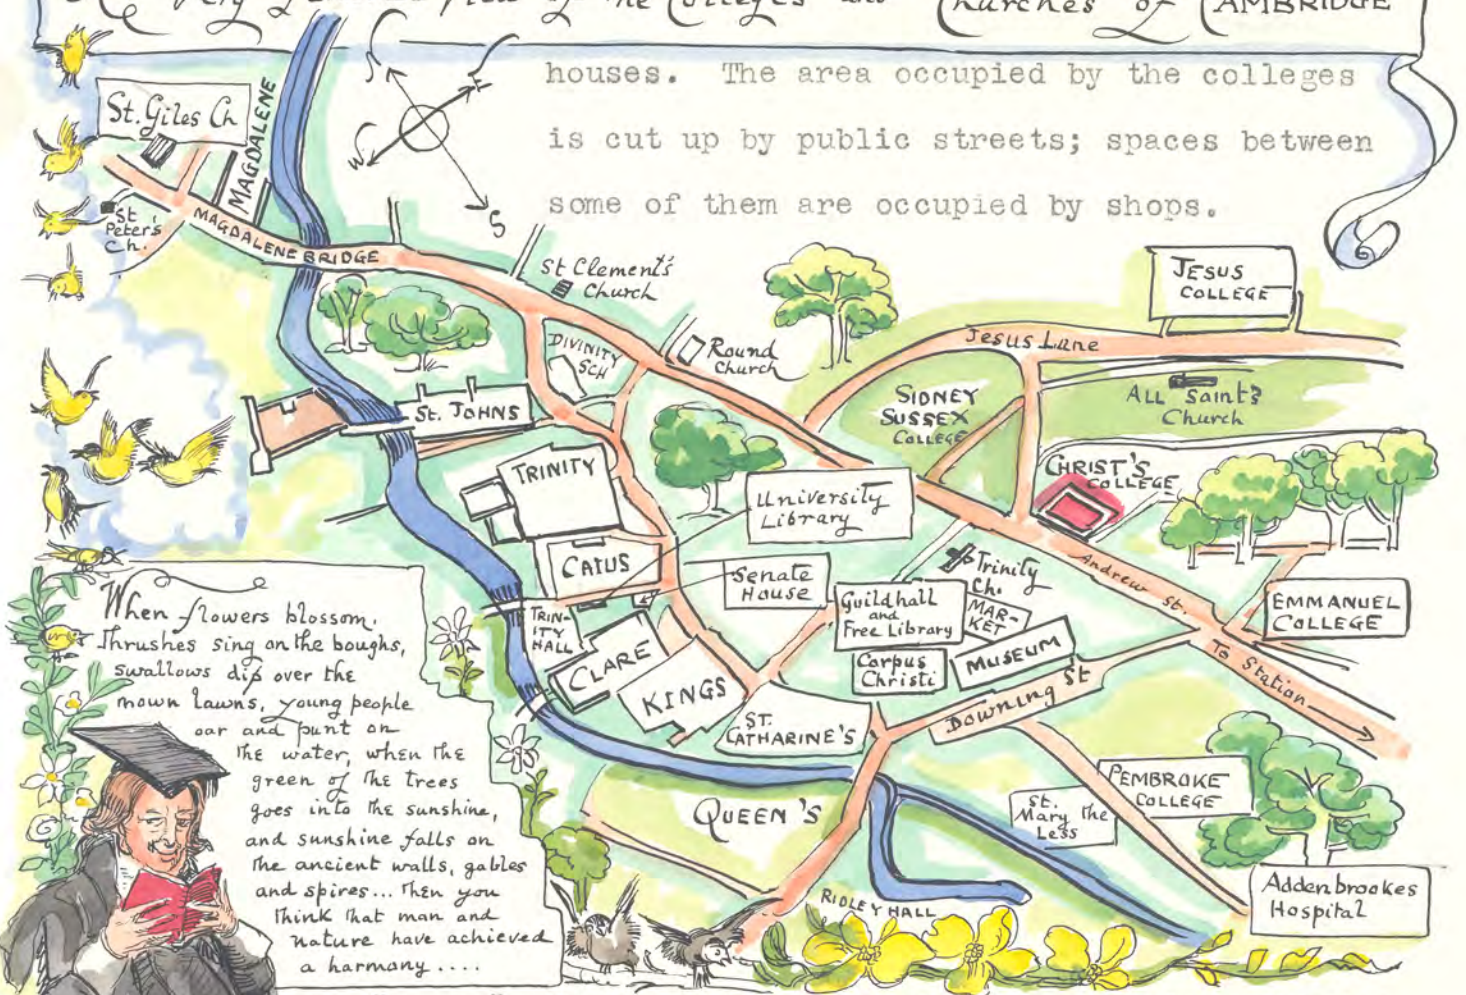 Very of the Colleges and Churches of CAMBRIDGE
houses. The area occupied by the colleges
is cut up by public streets; spaces between
some of them are occupied by shops.
St. Giles Ch
MAGDALENE
W
S
St
Peter's
Ch.
MAGDALENE BRIDGE
St Clement's
Church
DIVINITY
SCH
Round
Church
JESUS
COLLEGE
Jesus Lane
SIDNEY
SUSSEX
COLLEGE
ALL Saints
Church
St. JOHNS
TRINITY
CHRIST'S
COLLEGE
University
Library
CAIUS
Senate
House
Trinity
Ch.
Andrew St.
Guildhall
and
Free Library
MAR-
KET
EMMANUEL
COLLEGE
TRIN-
ITY
HALL
CLARE
KINGS
Corpus
Christi
MUSEUM
To Station
ST.
CATHARINE'S
Downing St
PEMBROKE
COLLEGE
QUEEN'S
St.
Mary the
Less
Addenbrookes
Hospital
RIDLEY HALL
When flowers blossom,
Thrushes sing on the boughs,
swallows dip over the
mown lawns, young people
oar and punt on
the water, when the
green of the trees
goes into the sunshine,
and sunshine falls on
the ancient walls, gables
and spires... Then you
think that man and
nature have achieved
a harmony ....